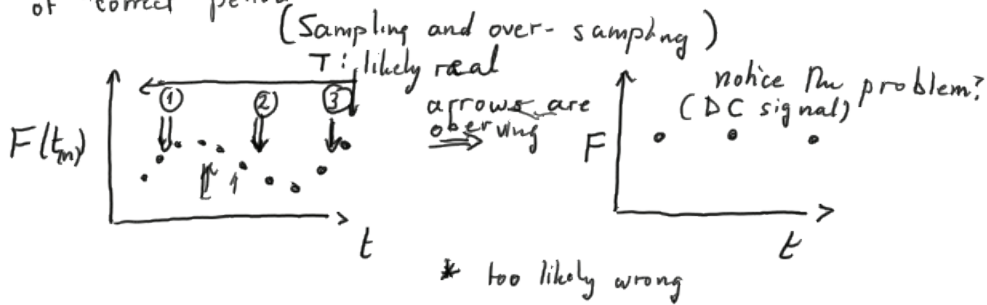 of correct period
(Sampling and over-sampling)
T: likely real
① ② ③
F(tₘ)
t
arrows are
oberving
notice the problem?
(DC signal)
F
t
* too likely wrong